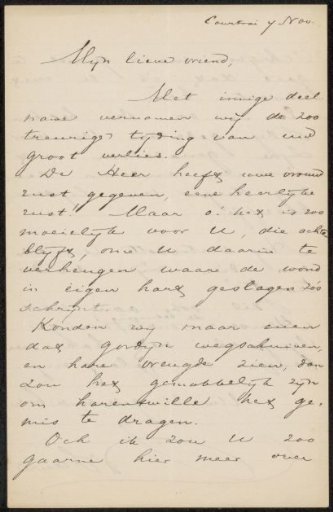 Courtrai 7 Nov.
Mijn lieve vriend,
Met innige deel
name vernamen wij de zoo
treurige tijding van uw
groot verlies.
De Heer heeft uwe vrouw
rust gegeven, eene heerlijke
rust! Maar o! het is zoo
moeielijk voor U, die achter
blijft, om U daarin te
verheugen waar de wond
in eigen hart geslagen zoo
schrijnt.
Konden wij maar even
dat gordijn wegschuiven,
en hare vreugde zien, dan
zou het gemakkelijk zijn
om harentwille het ge-
mis te dragen.
Och ik zou U zoo
gaarne hier meer over